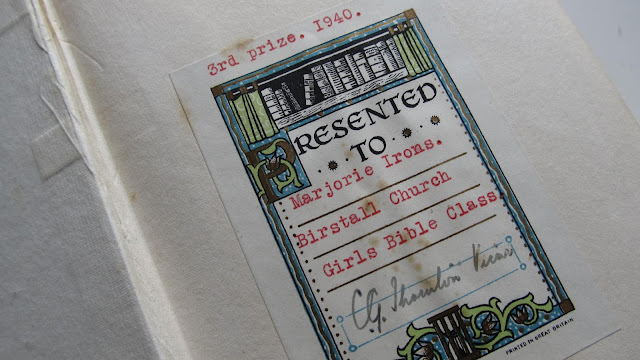 3rd prize. 1940.
PRESENTED
TO
Marjorie Irons.
Birstall Church
Girls Bible Class
C.G. Thornton Vicar
PRINTED IN GREAT BRITAIN